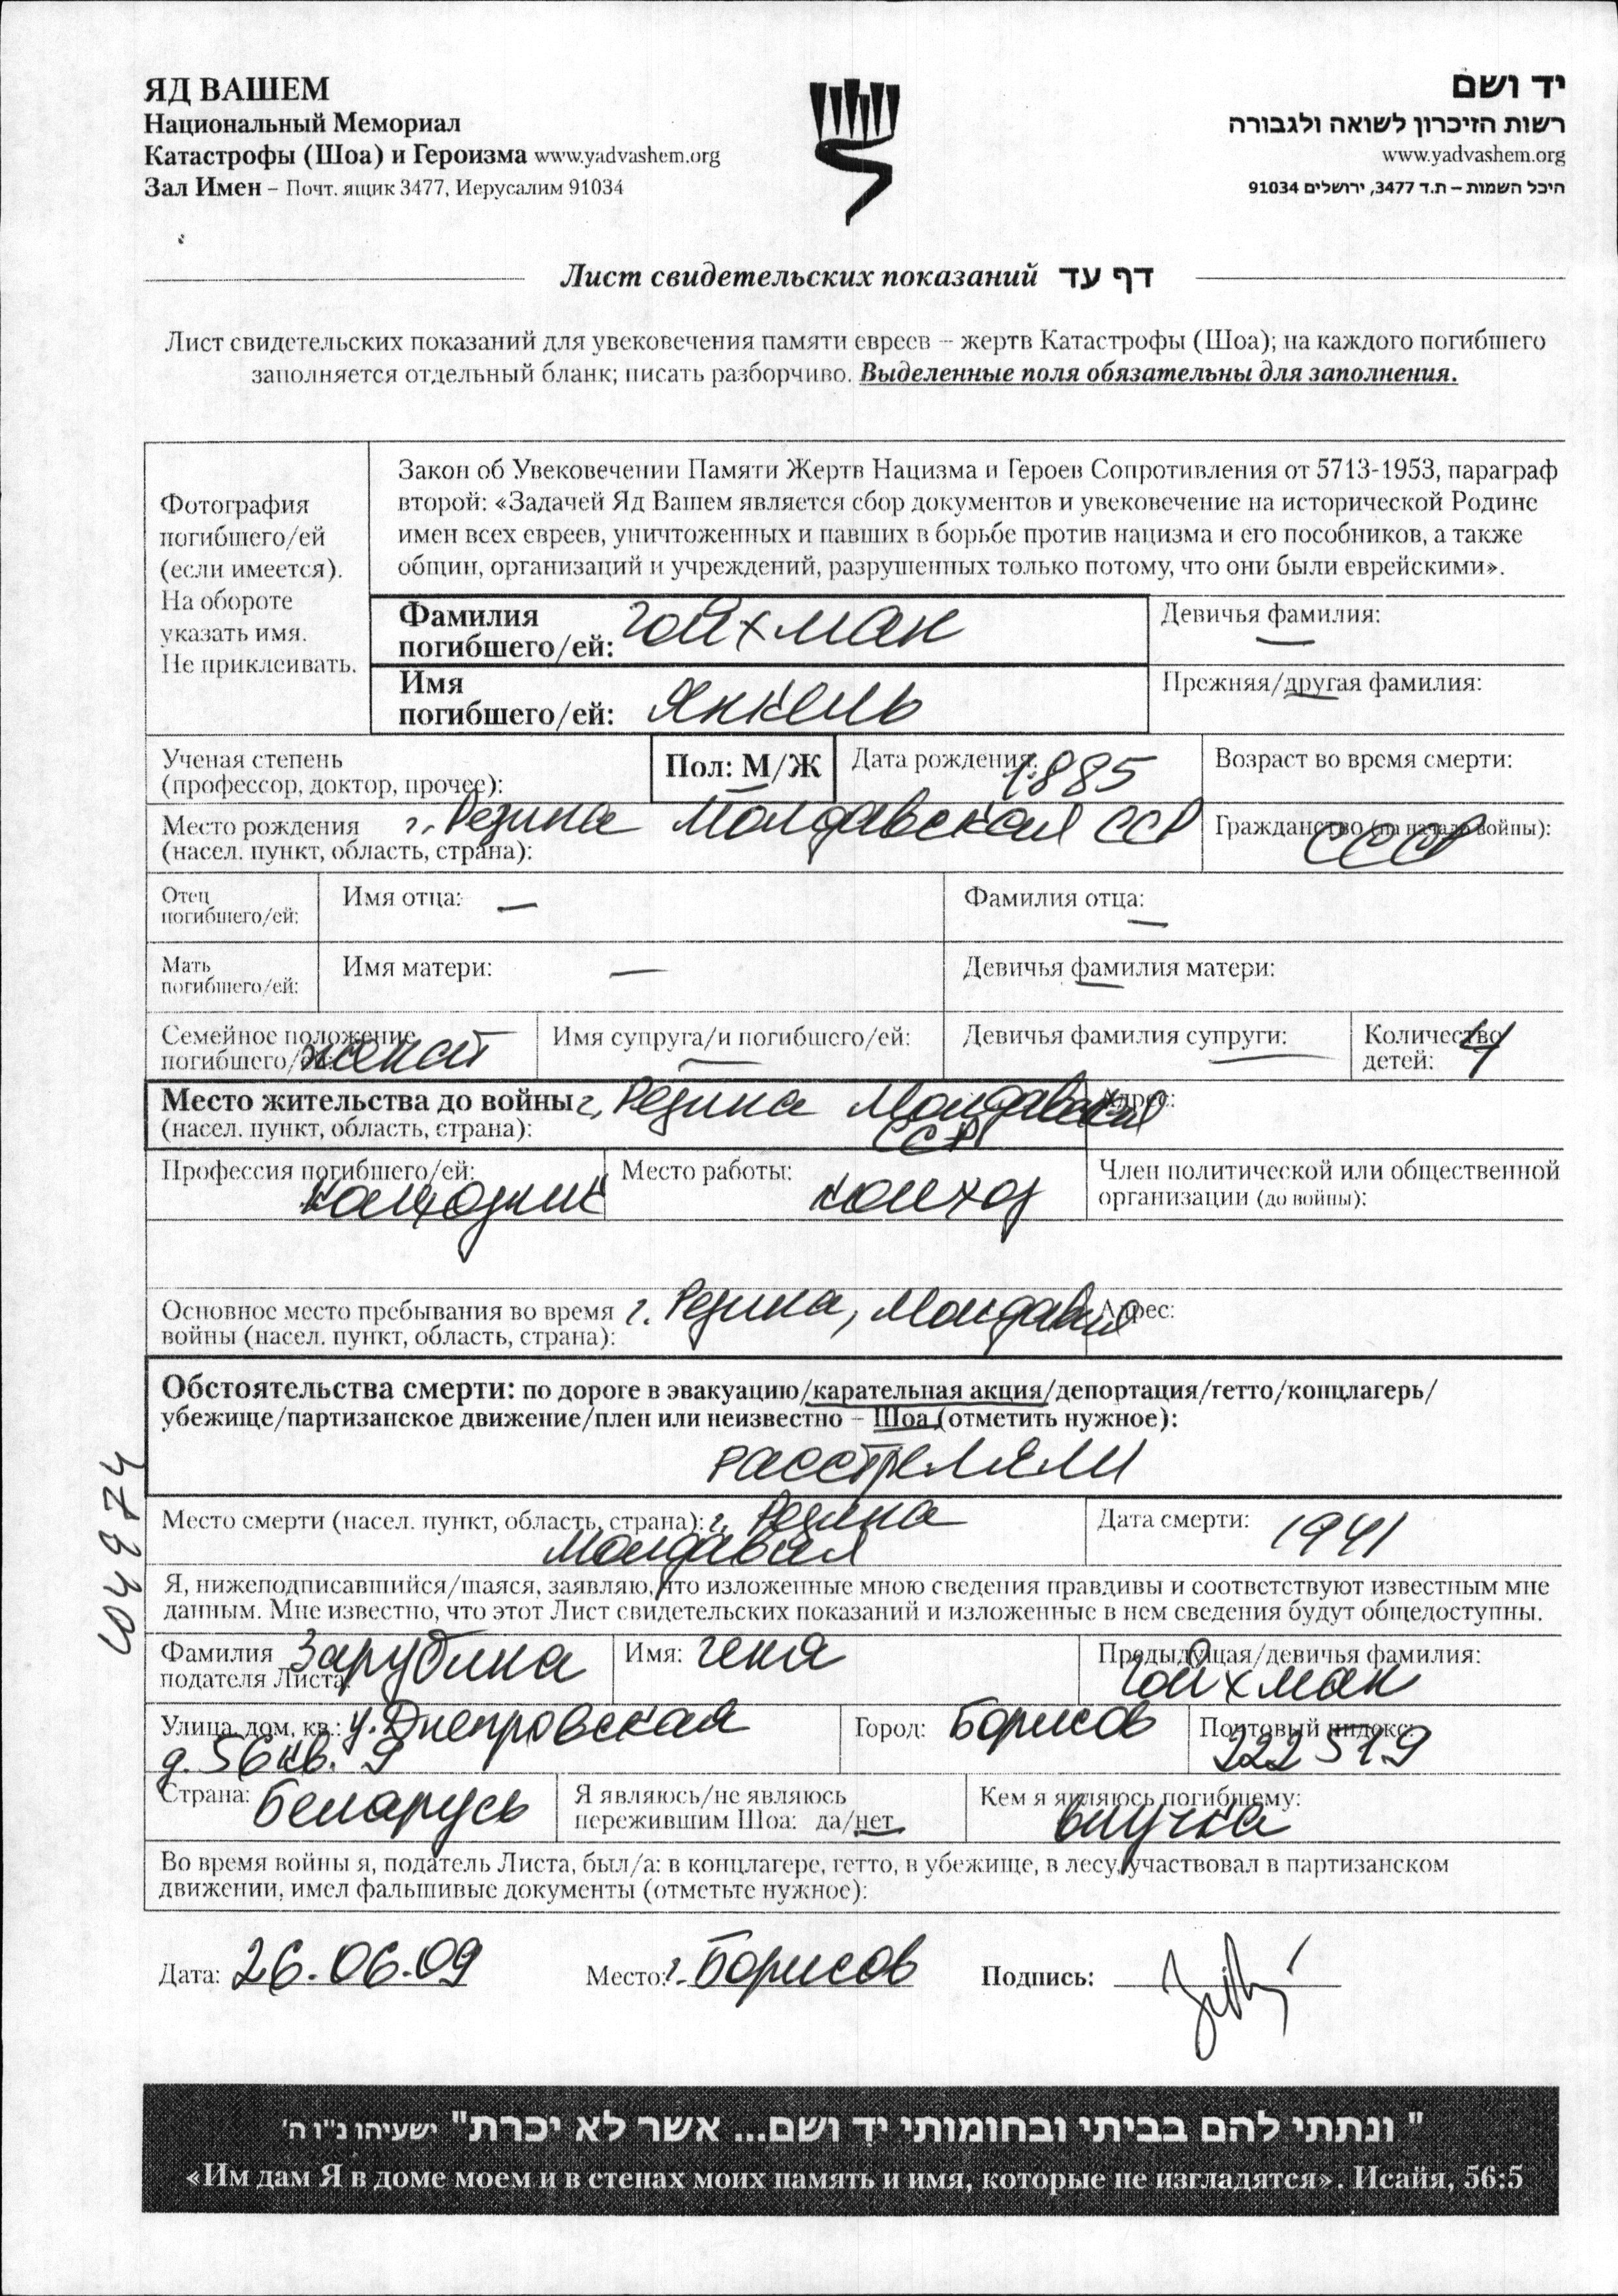 ЯД ВАШЕМ
Национальный Мемориал
Катастрофы (Шоа) и Героизма www.yadvashem.org
Зал Имен – Почт. ящик 3477, Иерусалим 91034
יד ושם
רשות הזיכרון לשואה ולגבורה
www.yadvashem.org
היכל השמות – ת.ד 3477, ירושלים 91034
Лист свидетельских показаний דף עד
Лист свидетельских показаний для увековечения памяти евреев – жертв Катастрофы (Шоа); на каждого погибшего
заполняется отдельный бланк; писать разборчиво. Выделенные поля обязательны для заполнения.
Фотография
погибшего/ей
(если имеется).
На обороте
указать имя.
Не приклеивать.
Закон об Увековечении Памяти Жертв Нацизма и Героев Сопротивления от 5713-1953, параграф
второй: «Задачей Яд Вашем является сбор документов и увековечение на исторической Родине
имен всех евреев, уничтоженных и павших в борьбе против нацизма и его пособников, а также
общин, организаций и учреждений, разрушенных только потому, что они были еврейскими».
Фамилия
погибшего/ей: Гойхман
Девичья фамилия: —
Имя
погибшего/ей: Янкель
Прежняя/другая фамилия:
Ученая степень
(профессор, доктор, прочее):
Пол: М/Ж
Дата рождения: 1885
Возраст во время смерти:
Место рождения г. Резина Молдавская ССР
(насел. пункт, область, страна):
Гражданство (на начало войны):
СССР
Отец
погибшего/ей:
Имя отца: —
Фамилия отца: —
Мать
погибшего/ей:
Имя матери: —
Девичья фамилия матери:
Семейное положение
погибшего/ей: женат
Имя супруга/и погибшего/ей: —
Девичья фамилия супруги: —
Количество
детей: 4
Место жительства до войны г. Резина Молдавская
(насел. пункт, область, страна): ССР
Адрес:
Профессия погибшего/ей:
колхозник
Место работы: колхоз
Член политической или общественной
организации (до войны):
Основное место пребывания во время г. Резина, Молдавия
войны (насел. пункт, область, страна):
Адрес:
Обстоятельства смерти: по дороге в эвакуацию/карательная акция/депортация/гетто/концлагерь/
убежище/партизанское движение/плен или неизвестно – Шоа (отметить нужное):
расстреляли
Место смерти (насел. пункт, область, страна): г. Резина
Молдавия
Дата смерти: 1941
Я, нижеподписавшийся/шаяся, заявляю, что изложенные мною сведения правдивы и соответствуют известным мне
данным. Мне известно, что этот Лист свидетельских показаний и изложенные в нем сведения будут общедоступны.
Фамилия
подателя Листа: Зарубина
Имя: Геня
Предыдущая/девичья фамилия:
Гойхман
Улица, дом, кв.: у. Днепровская
д. 56 кв. 9
Город: Борисов
Почтовый индекс:
222519
Страна: Беларусь
Я являюсь/не являюсь
пережившим Шоа: да/нет
Кем я являюсь погибшему:
внучка
Во время войны я, податель Листа, был/а: в концлагере, гетто, в убежище, в лесу, участвовал в партизанском
движении, имел фальшивые документы (отметьте нужное):
Дата: 26.06.09
Место: г. Борисов
Подпись:
" ונתתי להם בביתי ובחומותי יד ושם... אשר לא יכרת" ישעיהו נ"ו ה'
«Им дам Я в доме моем и в стенах моих память и имя, которые не изгладятся». Исайя, 56:5